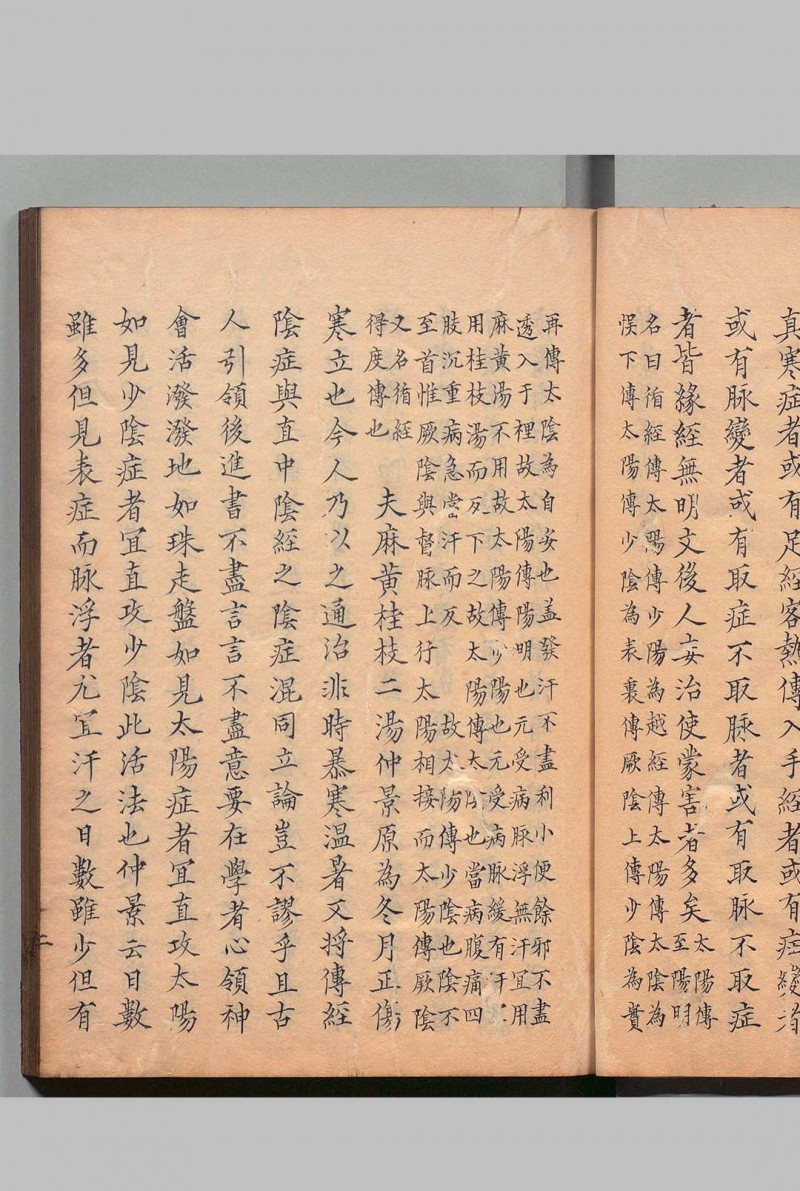 真寒症者或有足經客熱傳入手經者或有症變者
或有脉變者或有取症不取脉者或有取脉不取症
者皆緣經無明文後人妄治使蒙害者多矣太陽傳
至陽明
名曰循經傳太陽傳少陽為越經傳太陽傳太陰為
悮下傳太陽傳少陰為表裏傳厥陰上傳少陰為實
再傳太陰為自安也盖發汗不盡利小便餘邪不盡
透入于裡故太陽傳陽明也元受病脉浮無汗宜用
麻黄湯不用故太陽傳少陽也元受病脉緩有汗
用桂枝湯而反下之故太陽傳太陰也當病腹痛四
肢沉重病急當汗而反故太陽傳少陰也陰不
至首惟厥陰與督脉上行太陽相接而太陽傳厥陰
又名循經
得度傳也
夫麻黄桂枝二湯仲景原為冬月正傷
寒立也今人乃以之通治非時暴寒温暑又將傳經
陰症與直中陰經之陰症混同立論豈不謬乎且古
人引領後進書不盡言言不盡意要在學者心領神
會活潑潑地如珠走盤如見太陽症者冝直攻太陽
如見少陰症者冝直攻少陰此活法也仲景云日數
雖多但見表症而脉浮者尤冝汗之日數雖少但有